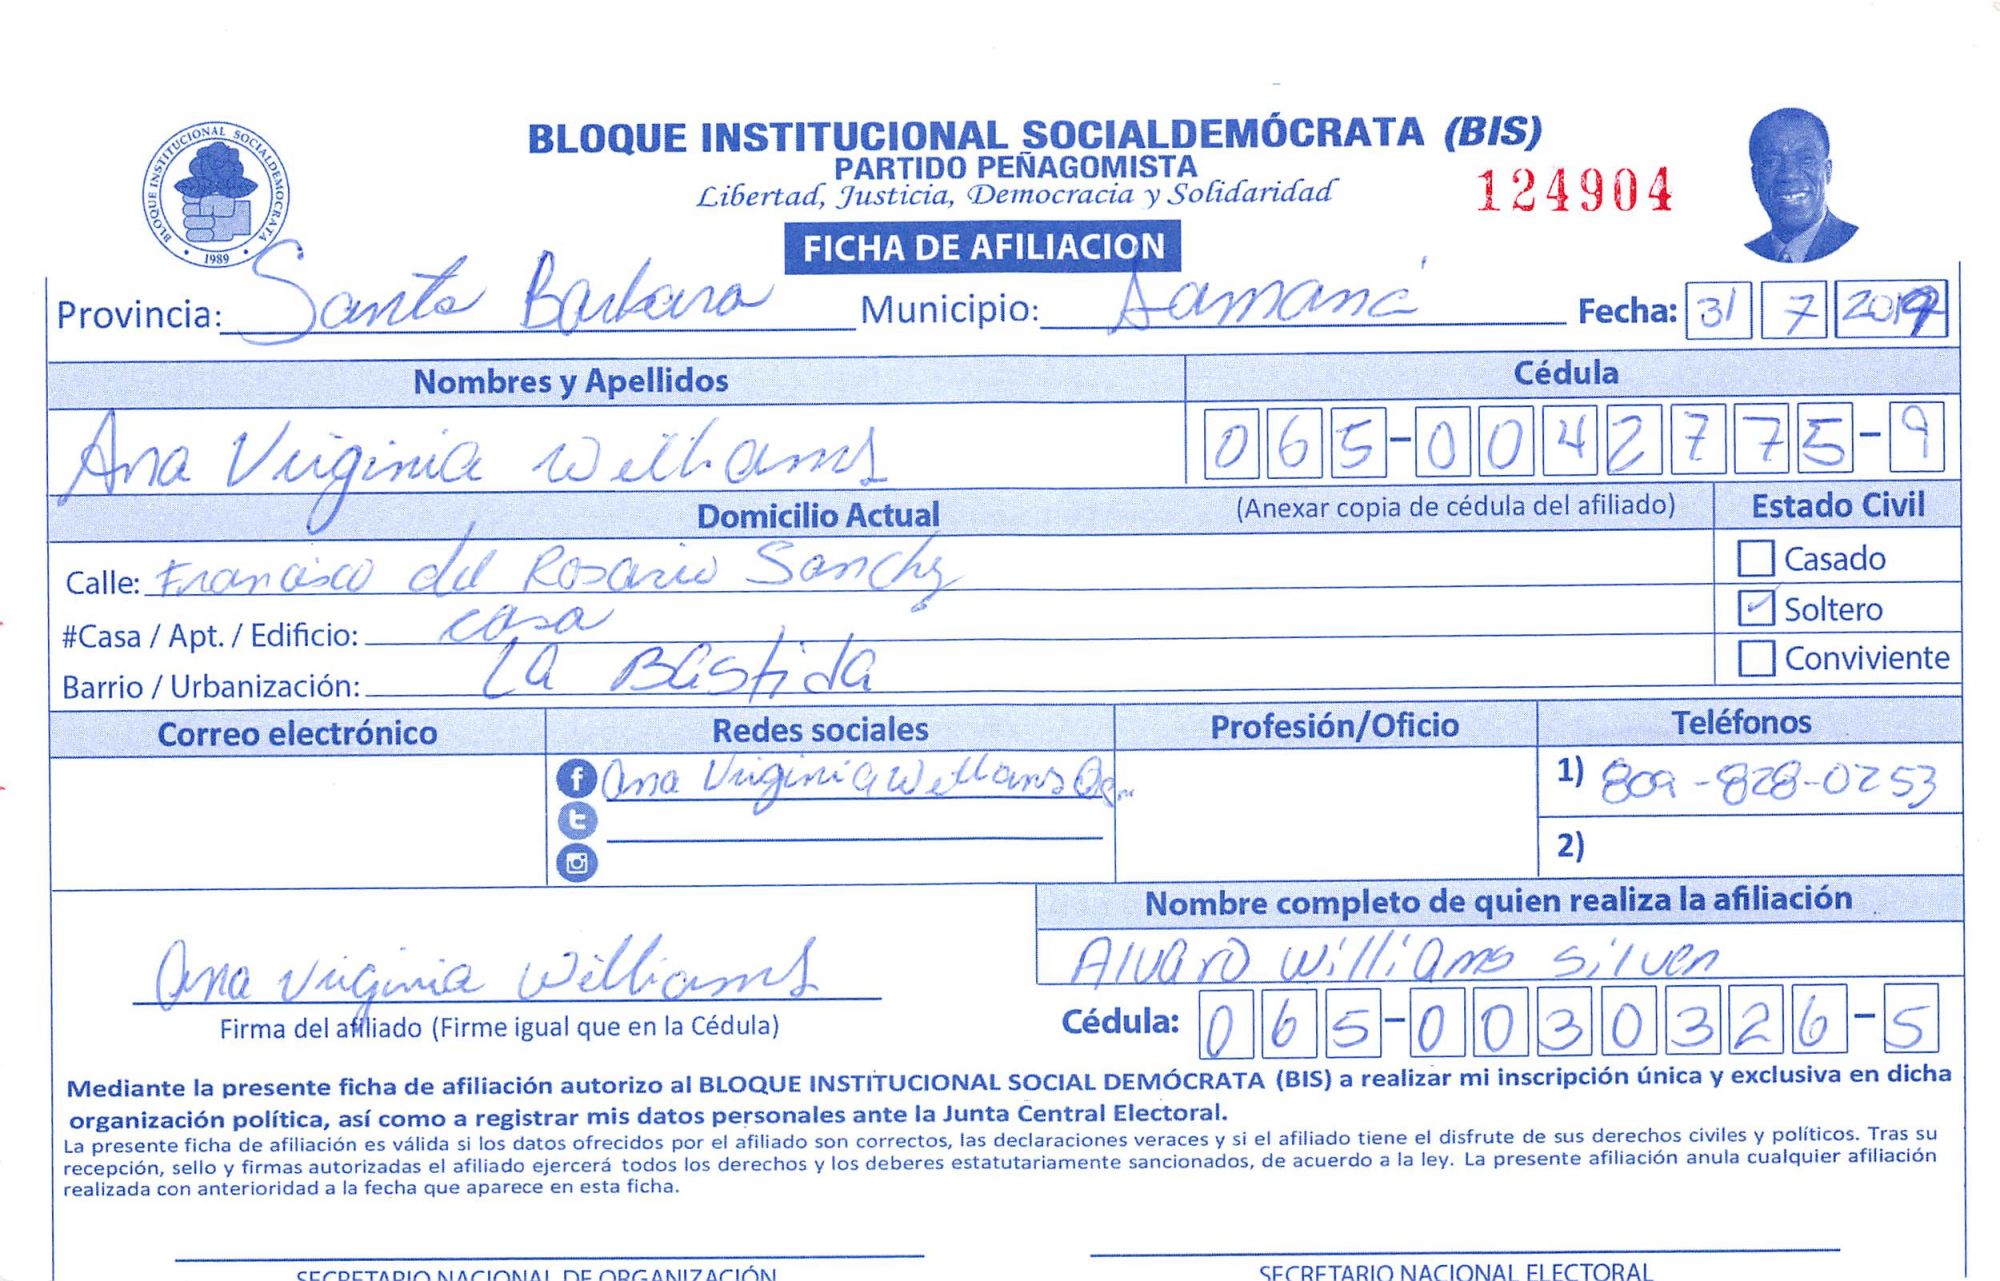 BLOQUE INSTITUCIONAL SOCIALDEMÓCRATA (BIS)
PARTIDO PEÑAGOMISTA
Libertad, Justicia, Democracia y Solidaridad
124904
BLOQUE INSTITUCIONAL SOCIALDEMOCRATA
1989
FICHA DE AFILIACION
Provincia: Santa Barbara Municipio: Samaná Fecha: 31 7 2019
Nombres y Apellidos Cédula
Ana Virginia Williams 065-0042775-9
Domicilio Actual (Anexar copia de cédula del afiliado) Estado Civil
Calle: Francisco del Rosario Sanchz Casado
#Casa / Apt. / Edificio: casa Soltero
Barrio / Urbanización: La Bastida Conviviente
Correo electrónico Redes sociales Profesión/Oficio Teléfonos
Ana Virginia Williams 1) 809-828-0253
2)
Nombre completo de quien realiza la afiliación
Ana Virginia Williams Alvaro Williams Silven
Firma del afiliado (Firme igual que en la Cédula) Cédula: 065-0030326-5
Mediante la presente ficha de afiliación autorizo al BLOQUE INSTITUCIONAL SOCIAL DEMÓCRATA (BIS) a realizar mi inscripción única y exclusiva en dicha
organización política, así como a registrar mis datos personales ante la Junta Central Electoral.
La presente ficha de afiliación es válida si los datos ofrecidos por el afiliado son correctos, las declaraciones veraces y si el afiliado tiene el disfrute de sus derechos civiles y políticos. Tras su
recepción, sello y firmas autorizadas el afiliado ejercerá todos los derechos y los deberes estatutariamente sancionados, de acuerdo a la ley. La presente afiliación anula cualquier afiliación
realizada con anterioridad a la fecha que aparece en esta ficha.
SECRETARIO NACIONAL DE ORGANIZACIÓN SECRETARIO NACIONAL ELECTORAL